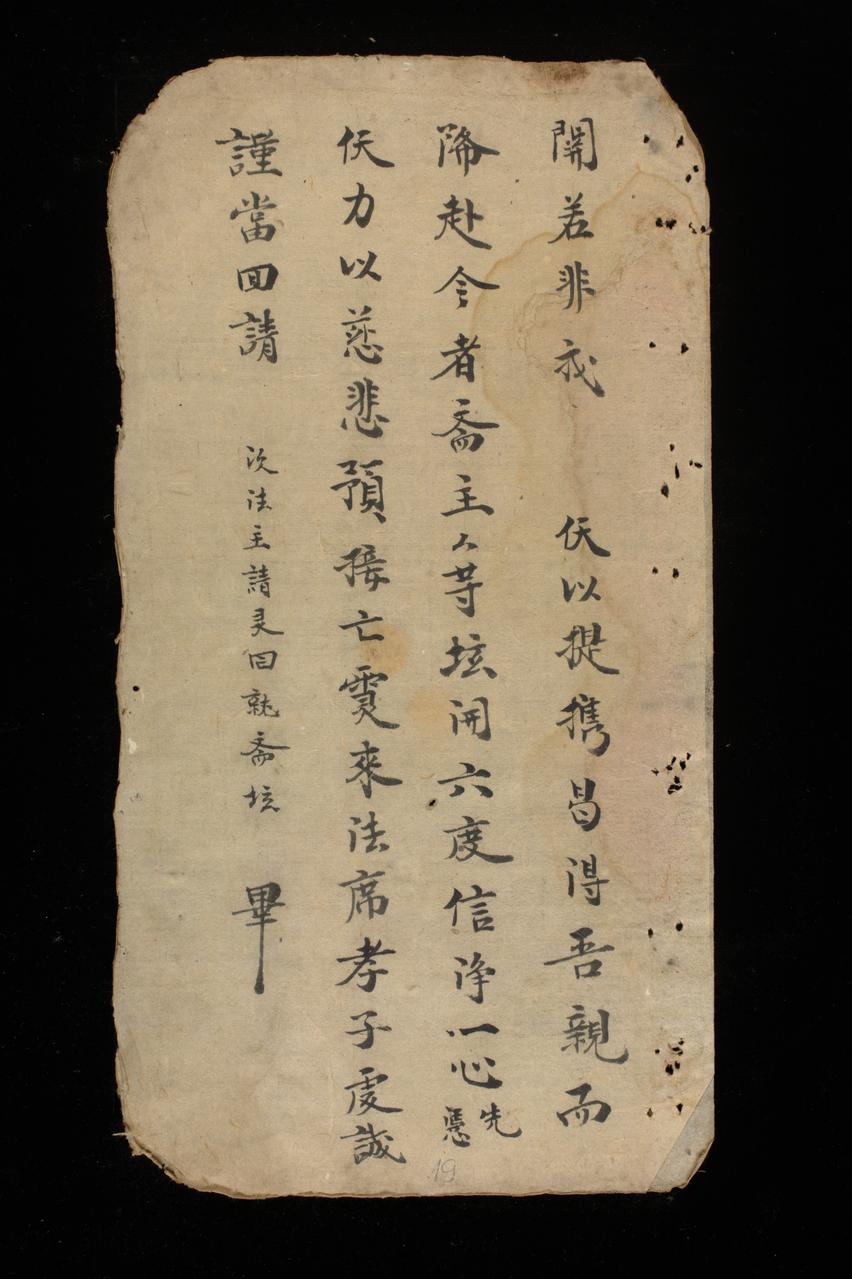 開若非我 仸以提携曷得吾親而
降赴今者斎主厶等坛開六度信浄一心先憑
仸力以慈悲預接亡靈來法席孝子虔誠
謹當囬請 次法主請灵囬就斎坛 畢
19